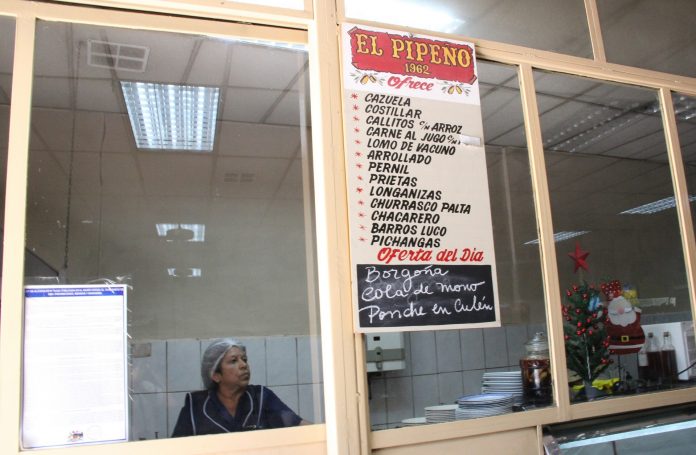 EL PIPEÑO
1962
Ofrece
* CAZUELA
* COSTILLAR
* CALLITOS C/N ARROZ
* CARNE AL JUGO C/N
* LOMO DE VACUNO
* ARROLLADO
* PERNIL
* PRIETAS
* LONGANIZAS
* CHURRASCO PALTA
* CHACARERO
* BARROS LUCO
* PICHANGAS
Oferta del Dia
Borgoña
Cola de mono
Ponche en Culén